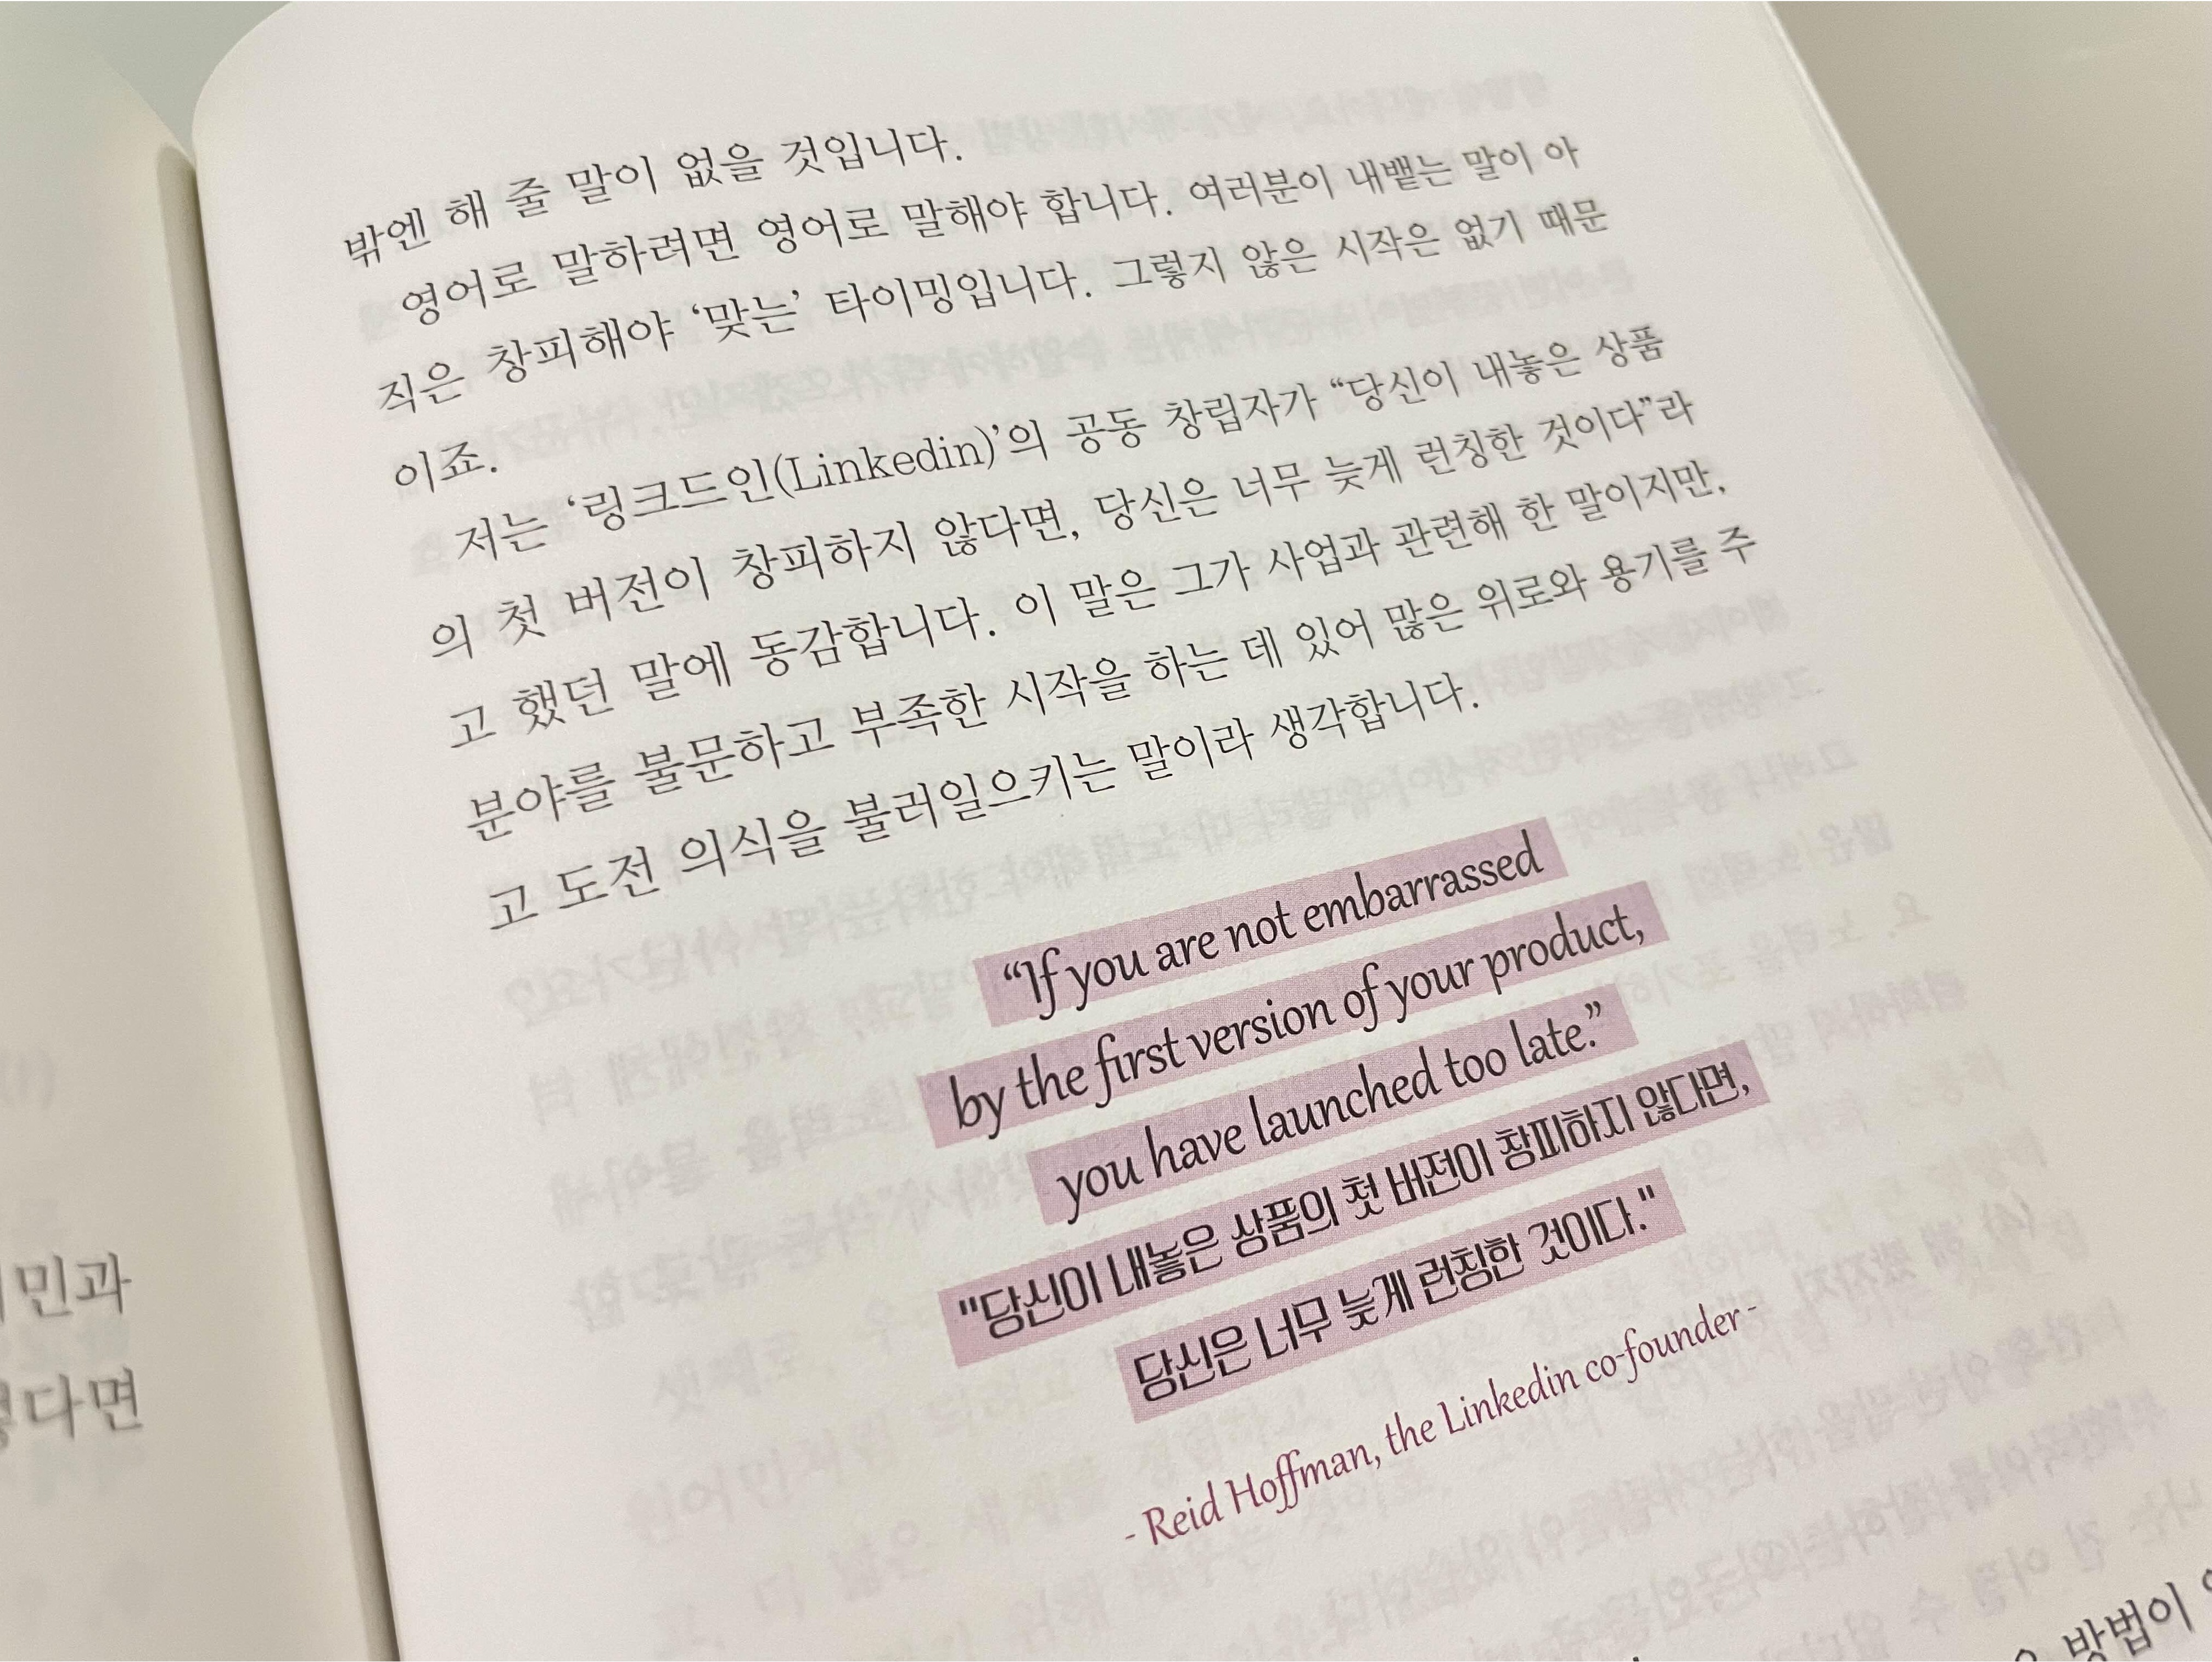 밖엔 해 줄 말이 없을 것입니다.
영어로 말하려면 영어로 말해야 합니다. 여러분이 내뱉는 말이 아
직은 창피해야 ‘맞는’ 타이밍입니다. 그렇지 않은 시작은 없기 때문
이죠.
저는 ‘링크드인(Linkedin)’의 공동 창립자가 “당신이 내놓은 상품
의 첫 버전이 창피하지 않다면, 당신은 너무 늦게 런칭한 것이다”라
고 했던 말에 동감합니다. 이 말은 그가 사업과 관련해 한 말이지만,
분야를 불문하고 부족한 시작을 하는 데 있어 많은 위로와 용기를 주
고 도전 의식을 불러일으키는 말이라 생각합니다.
“If you are not embarrassed
by the first version of your product,
you have launched too late.”
"당신이 내놓은 상품의 첫 버전이 창피하지 않다면,
당신은 너무 늦게 런칭한 것이다."
- Reid Hoffman, the Linkedin co-founder -
방법이
민과
다면